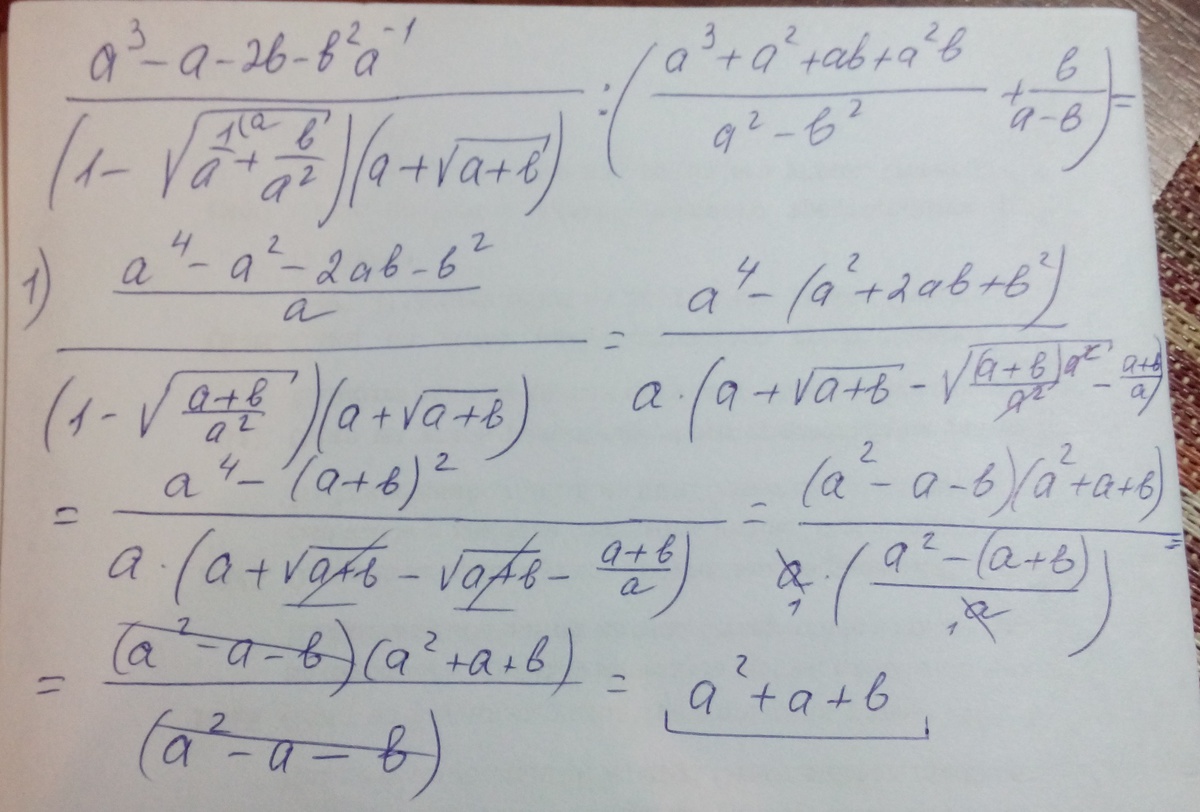 (a³ - a - 2b - b²a⁻¹) / ((1 - √(1(a/a + b/a²))(a + √(a+b))) : ((a³ + a² + ab + a²b)/(a² - b²) + b/(a-b)) =
1) ((a⁴ - a² - 2ab - b²)/a) / ((1 - √((a+b)/a²))(a + √(a+b))) = (a⁴ - (a² + 2ab + b²)) / (a · (a + √(a+b) - √((a+b)a²/a²) - (a+b)/a))
= (a⁴ - (a+b)²) / (a · (a + √(a+b) - √(a+b) - (a+b)/a)) = ((a² - a - b)(a² + a + b)) / (a 1 · ((a² - (a+b))/(1 a))) =
= ((a² - a - b)(a² + a + b)) / (a² - a - b) = a² + a + b